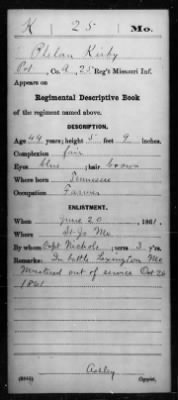 K 25 Mo.
Phelan Kirby
Pvt, Co. A, 25 Reg't Missouri Inf.
Appears on
Regimental Descriptive Book
of the regiment named above.
DESCRIPTION.
Age 44 years; height 5 feet 9 inches.
Complexion fair
Eyes blue; hair brown
Where born Tennessee
Occupation Farmer
ENLISTMENT.
When June 20, 1861.
Where St. Jo Mo
By whom Capt Nichols; term 3 y'rs.
Remarks: In battle Lexington Mo
Mustered out of service Oct 26
1861
Ashley
Copyist.